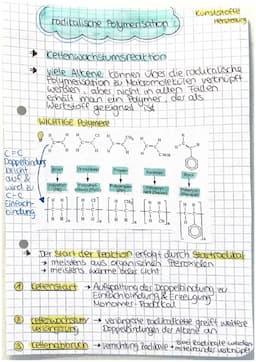 Kunststoffe
Herstellung
radikalische Polymerisation
→ Kettenwachstumsreaktion
→ Viele Alkene können über die radikalische
Polymerisation zu Makromolekülen verknüpft
werden, aber nicht in allen Fällen
erhält man ein Polymer, der als
Werkstoff geeignet ist
WICHTIGE Polymere
C=C
Doppelbindung
bricht
auf &
wird zu
C-C
Einfach-
bindung
→ Der Start der Reaktion erfolgt durch Startradikal
→ meistens aus organischen Peroxiden
→ meistens Wärme oder Licht
1 Kettenstart → Aufspaltung der Doppelbindung zu
Einfachbindung & Erzeugung
Monomer-Radikal
2 Kettenwachstum/
verlängerung → verlängerte Radikalkette greift weitere
Doppelbindungen der Alkene an
3 Kettenabbruch → Vernichtung Radikale → zwei Radikale werden
miteinander verknüpft